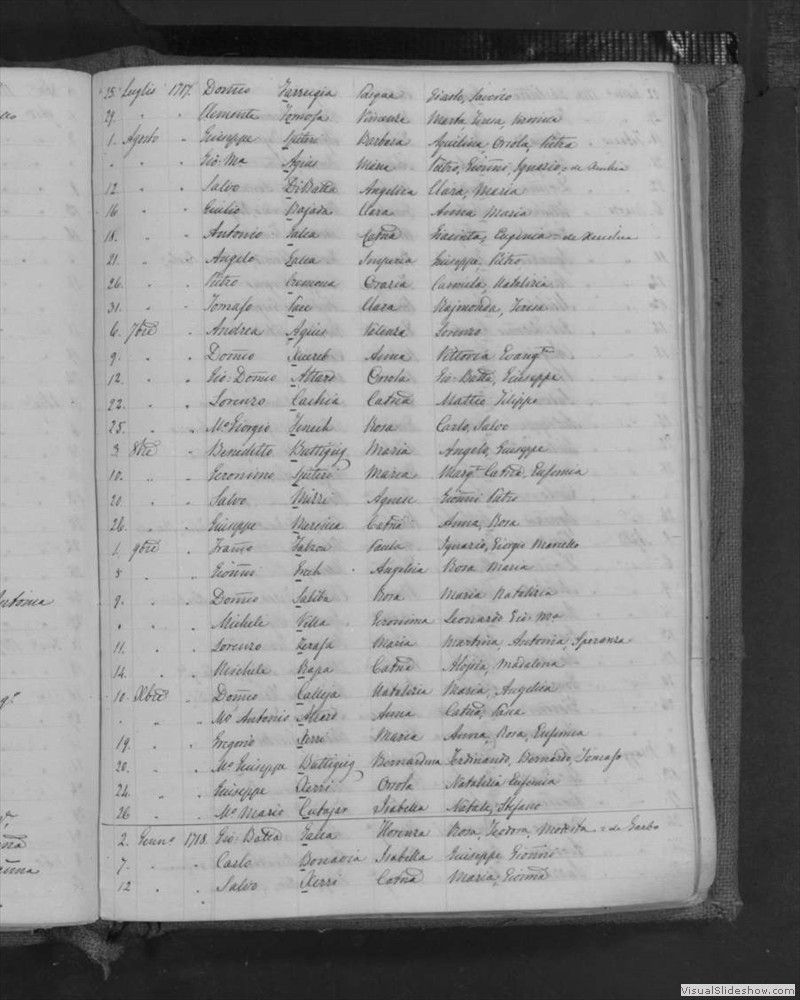 25 Luglio 1717. Domco Farrugia Pasqua
29. " " Clemente Tomasa Vincenza Marta, Teresa, Veronica
1. Agosto " Giuseppe Spiteri Barbara Aquilina, Orsola, Pietra
" " " Gio Ma Agius Maria Pietro, Gionni, Ignazio = de
12 " " Salvo DiBatta Angelica Clara, Maria
16 " " Giulio Bajada Clara Anna Maria
18. " " Antonio Galea Catna Giacinta, Eugenia = de
21. " " Angelo Galea Imperia Giuseppe, Pietro
26. " " Pietro Cremona Grazia Camila, Natalizia
31. " " Tomaso Pace Clara Rajmonda, Teresa
6. 7bre " Andrea Agius Valenza Lorenzo
9. " " Domco Xuereb Anna Vittoria Evangta
12. " " Gio Domco Attard Orsola Gio Batta, Giuseppe
22. " " Lorenzo Cachia Catna Matteo Filippo
25. " " Mo Giorgio Fenech Rosa Carlo, Salvo
3. 8bre " Benedetto Buttigieg Maria Angelo, Giuseppe
10. " " Geronimo Spiteri Maria Margta Catna, Eufemia
20. " " Salvo Mizzi Agnese Gionni Pietro
26. " " Giuseppe Mercieca Catna Anna, Rosa
1. 9bre " Franco Zabron Paula Ignazio, Giorgio
8 " " Gionni Grech Angelica Rosa Maria
9. " " Domco Saliba Rosa Maria Natalizia
" " " Michele Vella Geronima Leonardo Gio Ma
11. " " Lorenzo Zerafa Maria Martina, Antonia, Speranza
14. " " Michele Rapa Catna Alojsia, Madalena
10. Xbre " Domco Calleja Natalizia Maria, Angelica
" " " Mo Antonio Attard Anna Catna, Paca
19. " " Gregorio Xerri Maria Anna, Rosa, Eufemia
20. " " Mo Giuseppe Buttigieg Bernardina Ferdinando, Bernardo, Tomaso
24. " " Giuseppe Xerri Orsola Natalizia Eufemia
26 " " Mo Mario Cutajar Isabella Natale, Stefano
2. Genno 1718. Gio Batta Galea Florenza Rosa, Teodora, Modesta = de Garbo
7. " " Carlo Bonavia Isabella Giuseppe Gionni
12 " " Salvo Xerri Catna Maria, Gionna
VisualSlideshow.com